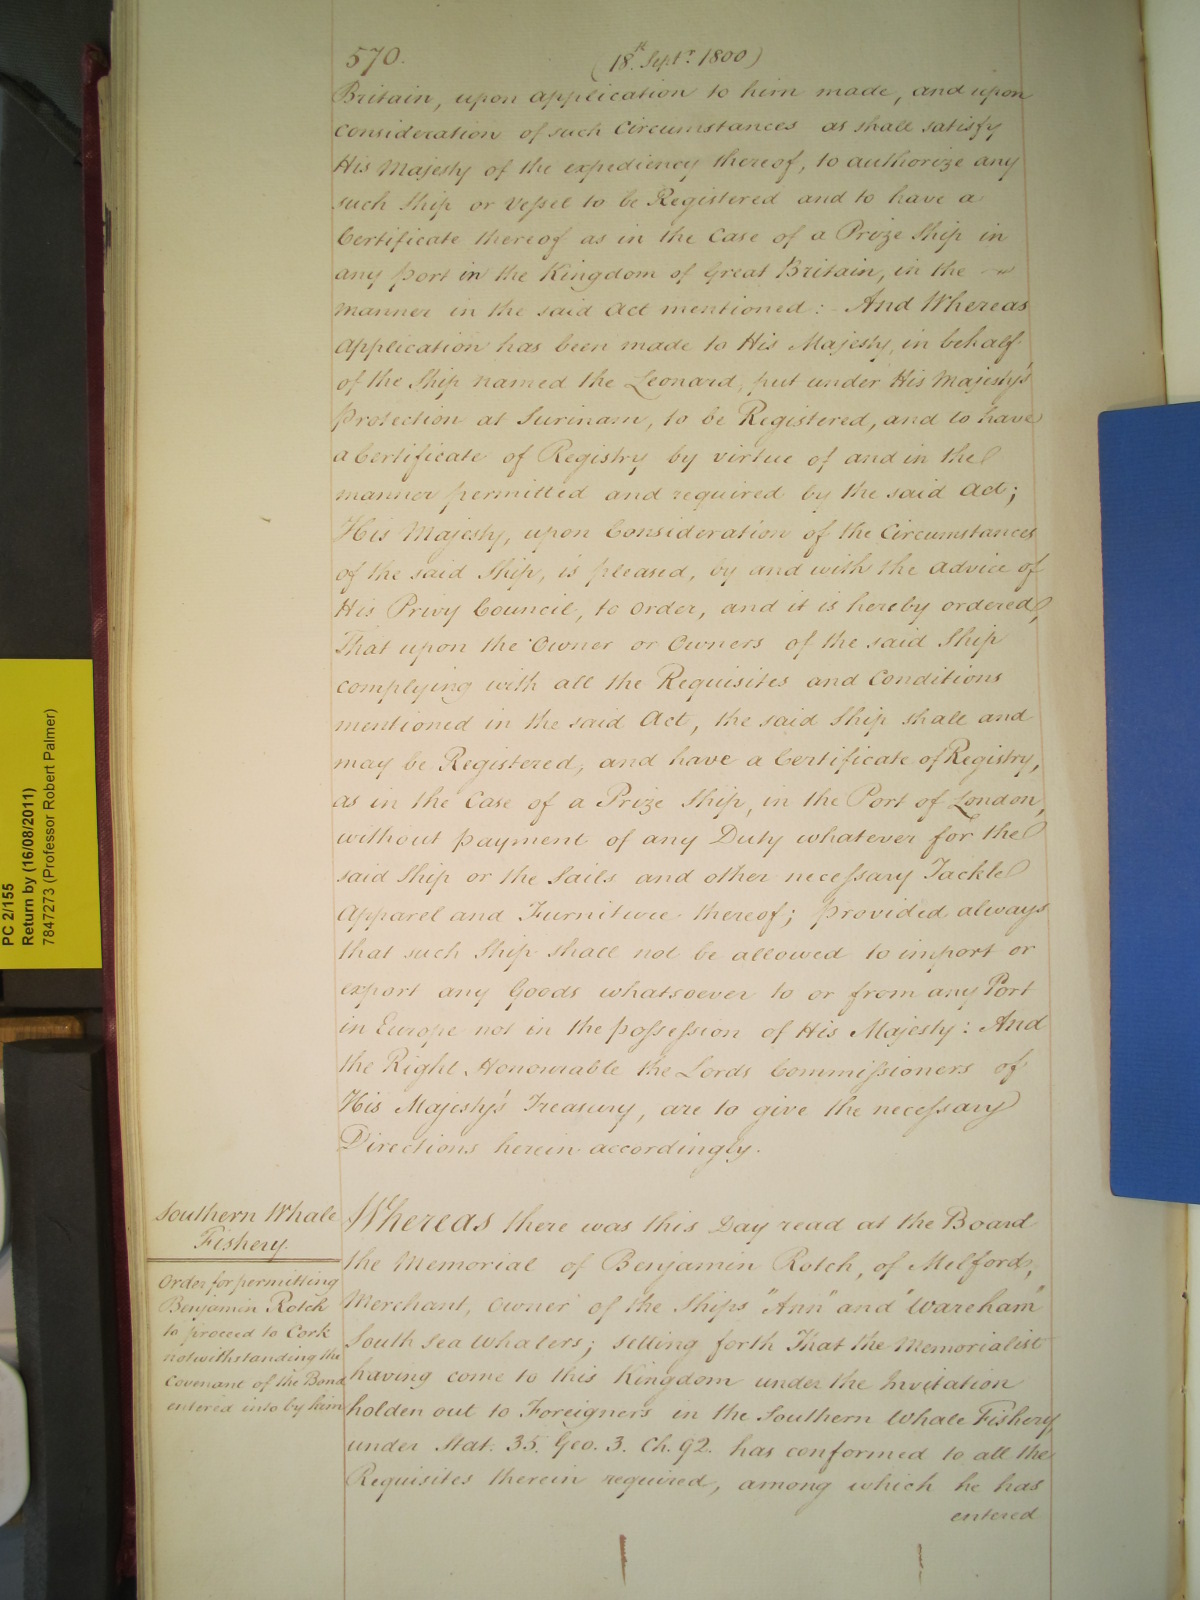 570.
(18th. Septr. 1800)
Britain, upon application to him made, and upon
Consideration of such Circumstances as shall satisfy
His Majesty of the expediency thereof, to authorize any
such Ship or Vessel to be Registered and to have a
Certificate thereof as in the Case of a Prize Ship in
any port in the Kingdom of Great Britain, in the
manner in the said Act mentioned: And Whereas
Application has been made to His Majesty, in behalf
of the Ship named the Leonard, put under His Majesty's
Protection at Surinam, to be Registered, and to have
a Certificate of Registry by virtue of and in the
manner permitted and required by the said Act;
His Majesty, upon Consideration of the Circumstances
of the said Ship, is pleased, by and with the Advice of
His Privy Council, to order, and it is hereby ordered,
That upon the Owner or Owners of the said Ship
complying with all the Requisites and Conditions
mentioned in the said Act, the said Ship shall and
may be Registered, and have a Certificate of Registry,
as in the Case of a Prize Ship, in the Port of London,
without payment of any Duty whatever for the
said Ship or the Sails and other necessary Tackle
Apparel and Furniture thereof; provided always
that such Ship shall not be allowed to import or
export any Goods whatsoever to or from any Port
in Europe not in the possession of His Majesty: And
the Right Honourable the Lords Commissioners of
His Majesty's Treasury, are to give the necessary
Directions herein accordingly.
Southern Whale
Fishery.
Order for permitting
Benjamin Rotch
to proceed to Cork
notwithstanding the
Covenant of the Bond
entered into by him
Whereas there was this Day read at the Board
the Memorial of Benjamin Rotch, of Milford,
Merchant, Owner of the Ships "Ann" and "Wareham"
South Sea Whalers; setting forth That the Memorialist
having come to this Kingdom under the Invitation
holden out to Foreigners in the Southern Whale Fishery,
under Stat. 35. Geo. 3. Ch. 92. has conformed to all the
Requisites therein required, among which he has
entered
PC 2/155
Return by (16/08/2011)
7847273 (Professor Robert Palmer)